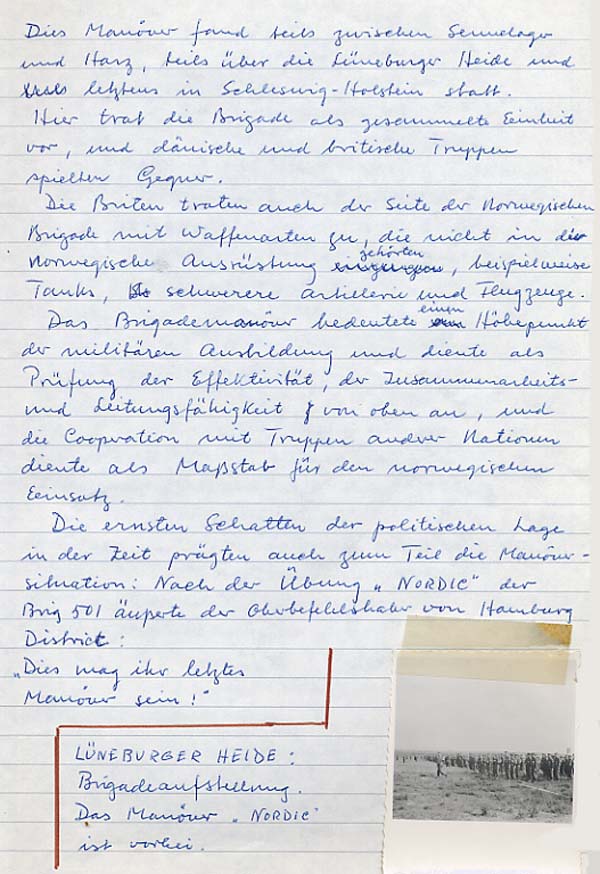 Dies Manöver fand teils zwischen Sennelager
und Harz, teils über die Lüneburger Heide und
letztens in Schleswig-Holstein statt.
Hier trat die Brigade als gesammelte Einheit
vor, und dänische und britische Truppen
spielten Gegner.
Die Briten traten auch der Seite der Norwegischen
Brigade mit Waffenarten zu, die nicht in der
gehörten
Norwegische Ausrüstung, beispielweise
Tanks, schwerere Artillerie und Flugzeuge.
einen
Das Brigademanöver bedeutete Höhepunkt
der militären Ausbildung und diente als
Prüfung der Effektivität, der Zusammenarbeits-
und Leitungsfähigkeit von oben an, und
die Cooperation mit Truppen andrer Nationen
diente als Maßstab für den norwegischen
Einsatz.
Die ernsten Schatten der politischen Lage
in der Zeit prägten auch zum Teil die Manöver-
situation: Nach der Übung „NORDIC" der
Brig 501 äußerte der Oberbefehlshaber von Hamburg
District:
„Dies mag ihr letztes
Manöver sein!"
LÜNEBURGER HEIDE:
Brigadeaufstellung.
Das Manöver „NORDIC"
ist vorbei.